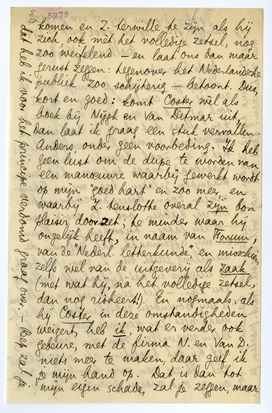 5279
komen en Z. terwille te zijn als hij
zich ook met het volledige zetsel, nog
zoo weifelend – en laat ons dan maar
gerust zeggen: tegenover het Nederlandsche
publiek zoo schijterig – betoont. Dus,
kort en goed: komt Coster wel als
boek bij Nijgh en Van Ditmar uit,
dan laat ik graag een stuk vervallen.
Anders, onder geen voorbeding. Ik heb
geen lust om de dupe te worden van
een manoeuvre waarbij gewerkt wordt
op mijn "goed hart" en zoo meer, en
waarbij Z. tenslotte overal zijn bon
plaisir doorzet, te minder waar hij
ongelijk heeft, in naam van Forum,
van de "Nederl. letterkunde", en misschien
zelfs wel van de uitgeverij als zaak
(met wat hij, na het volledige zetsel,
dan nog riskeert). En nogmaals, als
hij Coster in deze omstandigheden
weigert, heb ik, wat er verder ook
gebeure, met de firma N. en Van D.
niets meer te maken, daar geef ik
je mijn hand op. Dat is dan tot
mijn eigen schade, zal je zeggen, maar
dat heb ik voor het principe verdomd graag over. –